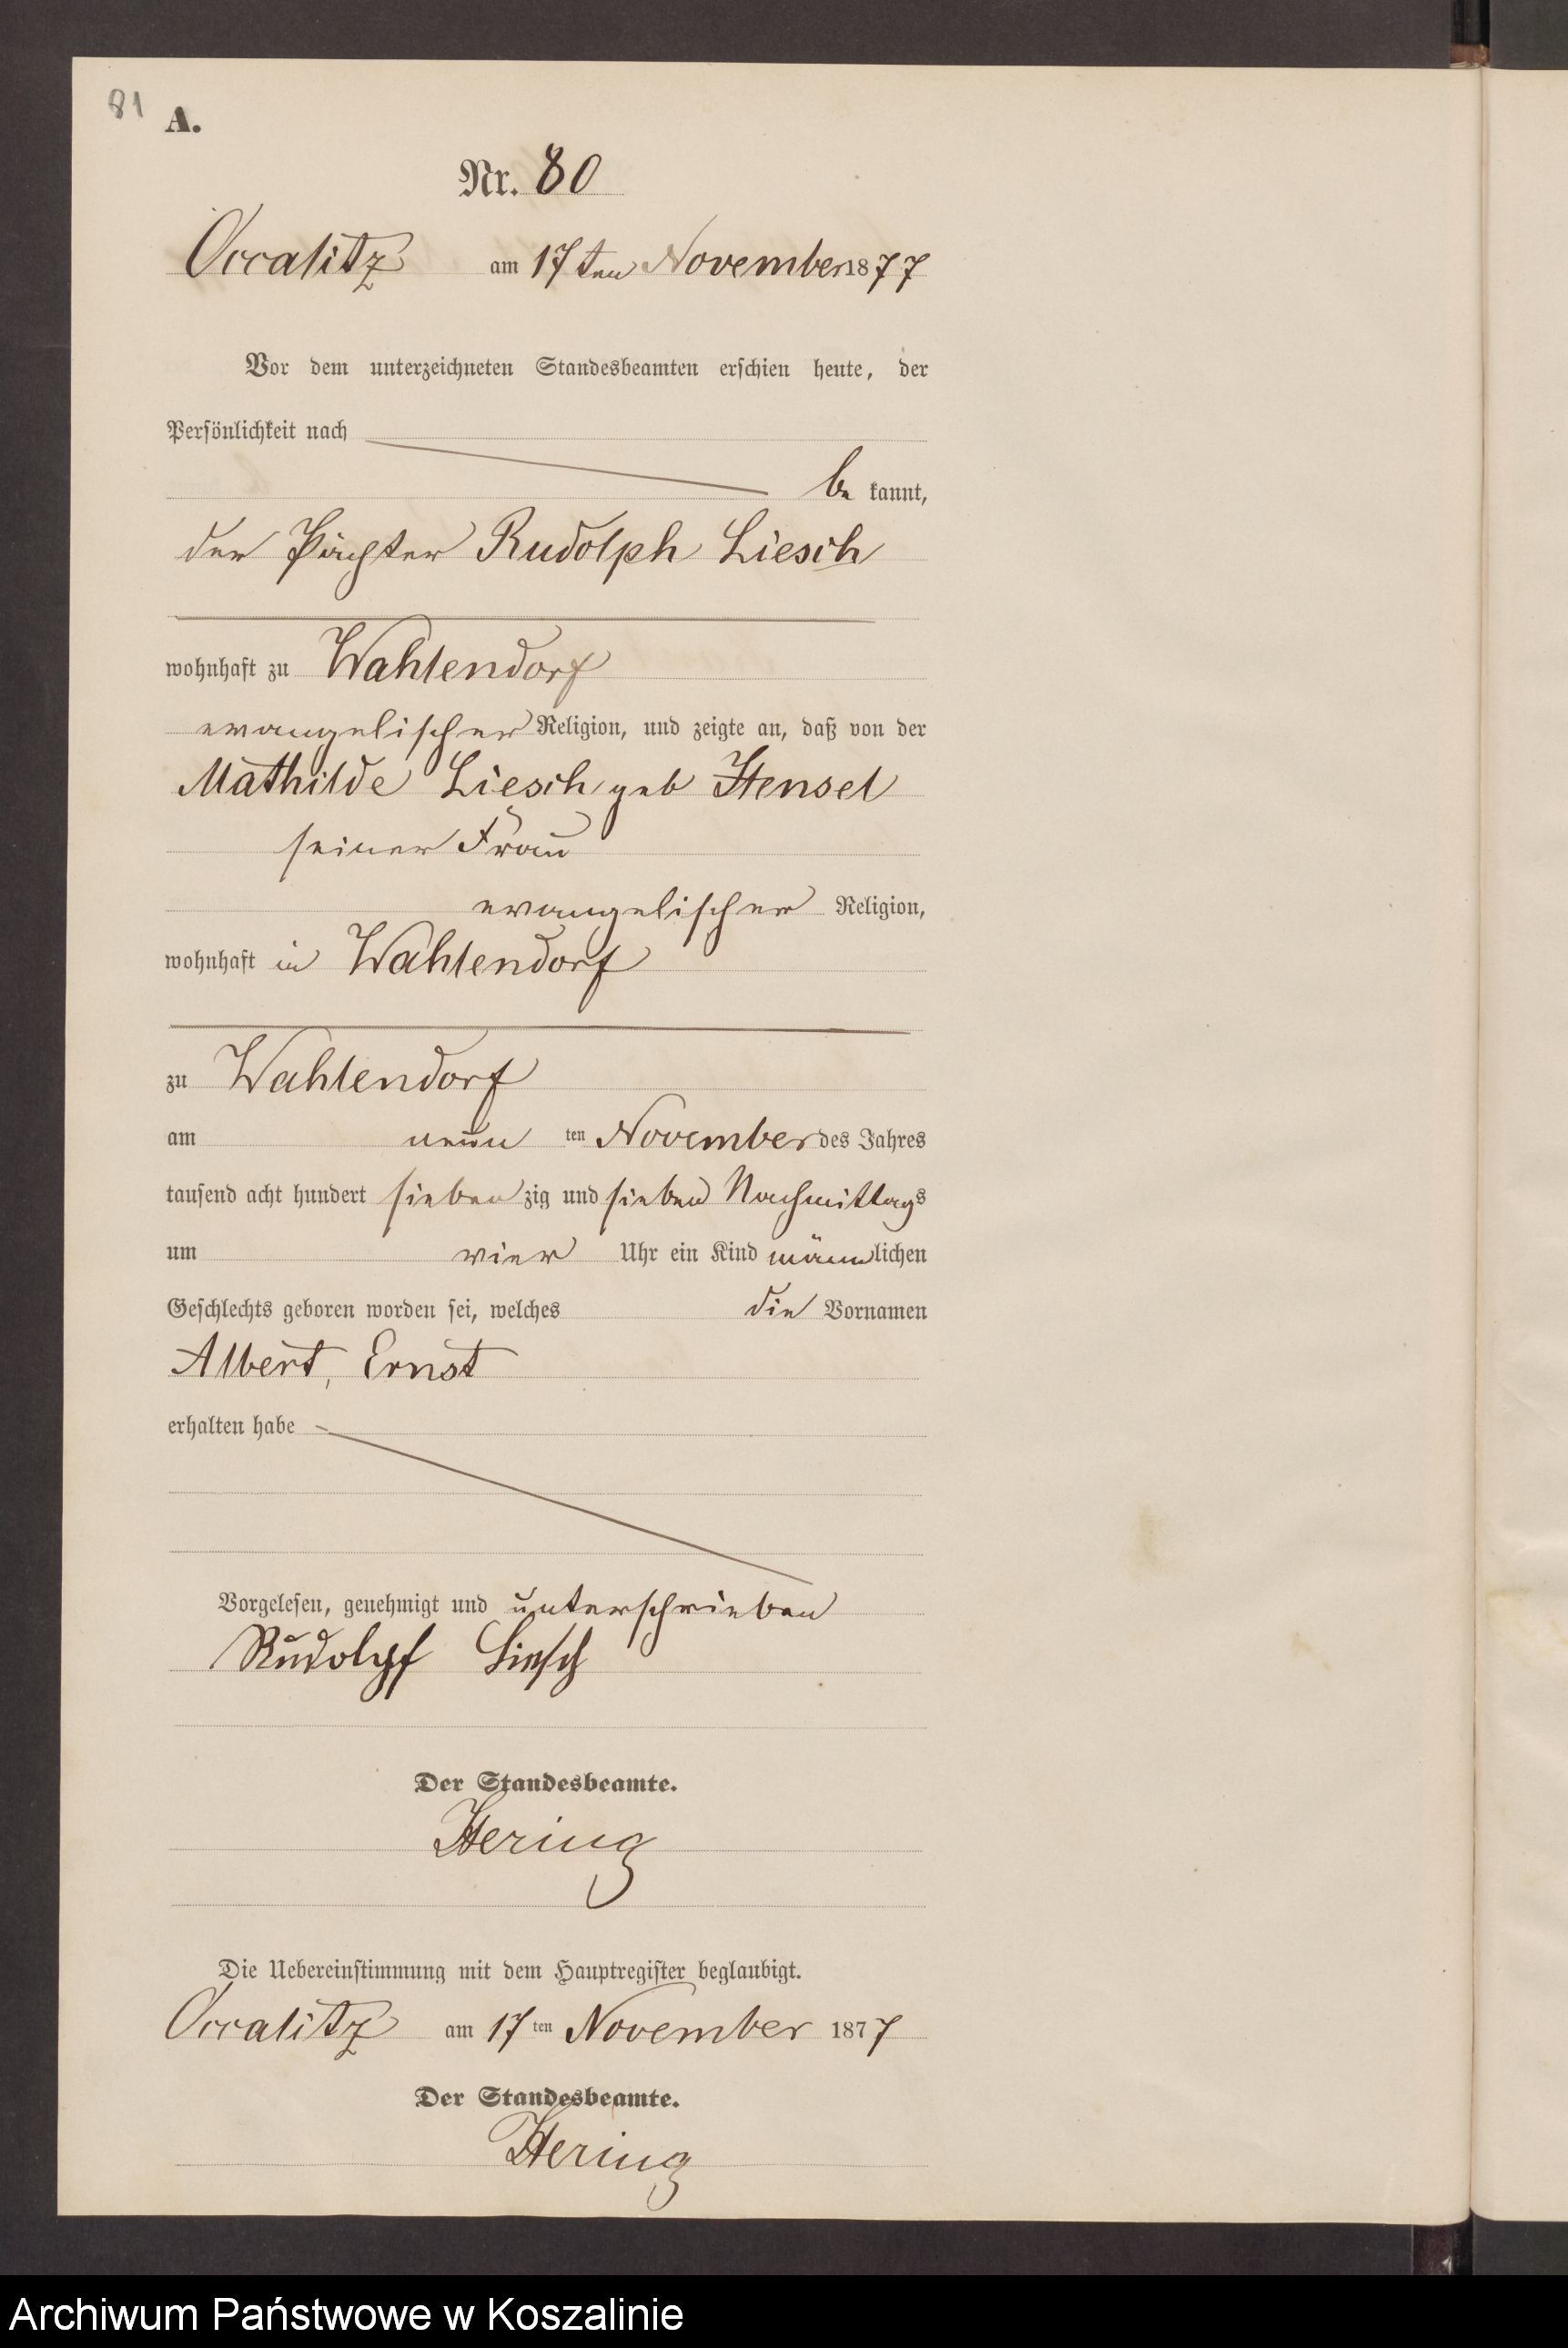 81
A.
Nr. 80
Occalitz am 17ten November 1877
Vor dem unterzeichneten Standesbeamten erschien heute, der
Persönlichkeit nach
be kannt,
der Pächter Rudolph Liesch
wohnhaft zu Wahlendorf
evangelischer Religion, und zeigte an, daß von der
Mathilde Liesch geb Hensel
seiner Frau
evangelischer Religion,
wohnhaft in Wahlendorf
zu Wahlendorf
am neun ten November des Jahres
tausend acht hundert sieben zig und sieben Nachmittags
um vier Uhr ein Kind männlichen
Geschlechts geboren worden sei, welches die Vornamen
Albert, Ernst
erhalten habe
Vorgelesen, genehmigt und unterschrieben
Rudolpf Liesch
Der Standesbeamte.
Hering
Die Uebereinstimmung mit dem Hauptregister beglaubigt.
Occalitz am 17 ten November 1877
Der Standesbeamte.
Hering
Archiwum Państwowe w Koszalinie